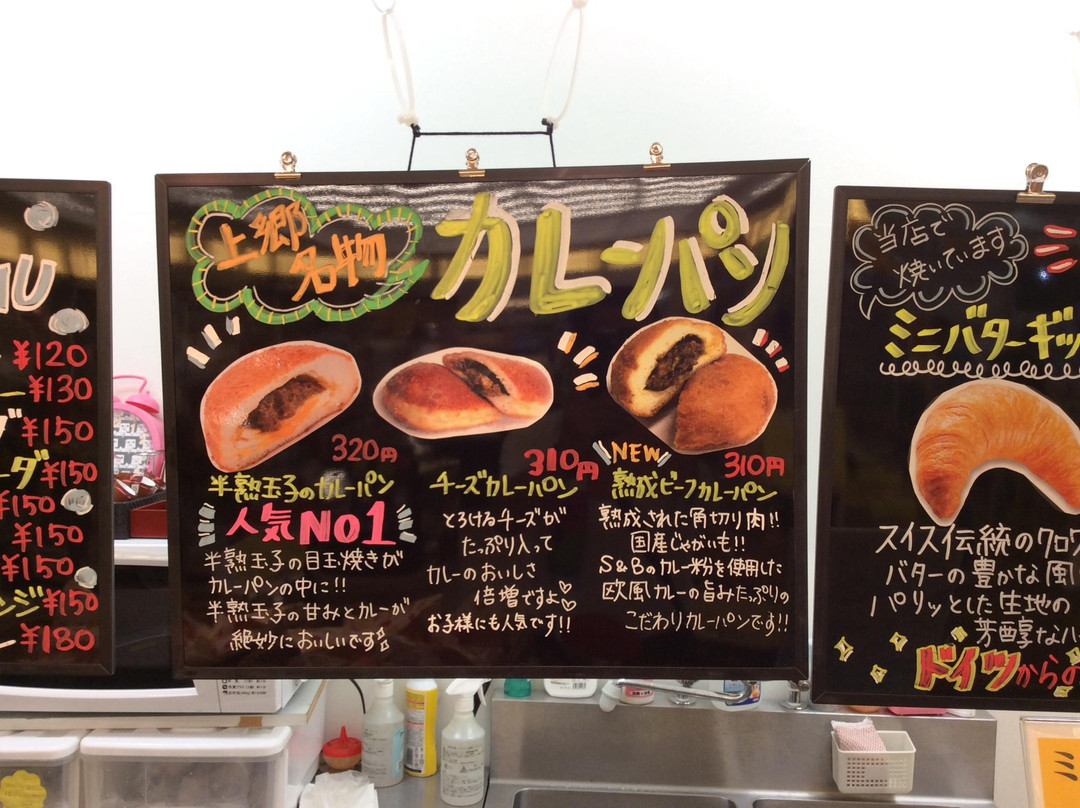 NU
¥120
ー¥130
ダ¥150
ーダ¥150
¥150
¥150
¥150
ンジ¥150
ー¥180
上郷
名物
カレーパン
320円
半熟玉子のカレーパン
人気No1
半熟玉子の目玉焼きが
カレーパンの中に!!
半熟玉子の甘みとカレーが
絶妙においしいです
310円
チーズカレーパン
とろけるチーズが
たっぷり入って
カレーのおいしさ
倍増ですよ♡♡
お子様にも人気です!!
NEW 310円
熟成ビーフカレーパン
熟成された角切り肉!!
国産じゃがいも!!
S&Bのカレー粉を使用した
欧風カレーの旨みたっぷりの
こだわりカレーパンです!!
当店で
焼いています
ミニバターギッ
スイス伝統のクロワ
バターの豊かな風
パリッとした生地の
芳醇なハ
ドイツからの
ミ